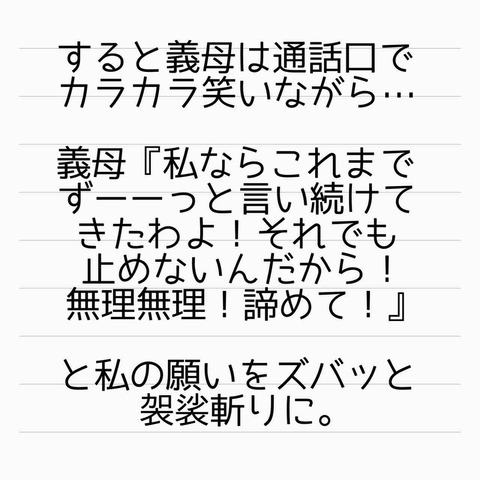 すると義母は通話口で
カラカラ笑いながら…
義母『私ならこれまで
ずーーっと言い続けて
きたわよ！それでも
止めないんだから！
無理無理！諦めて！』
と私の願いをズバッと
袈裟斬りに。